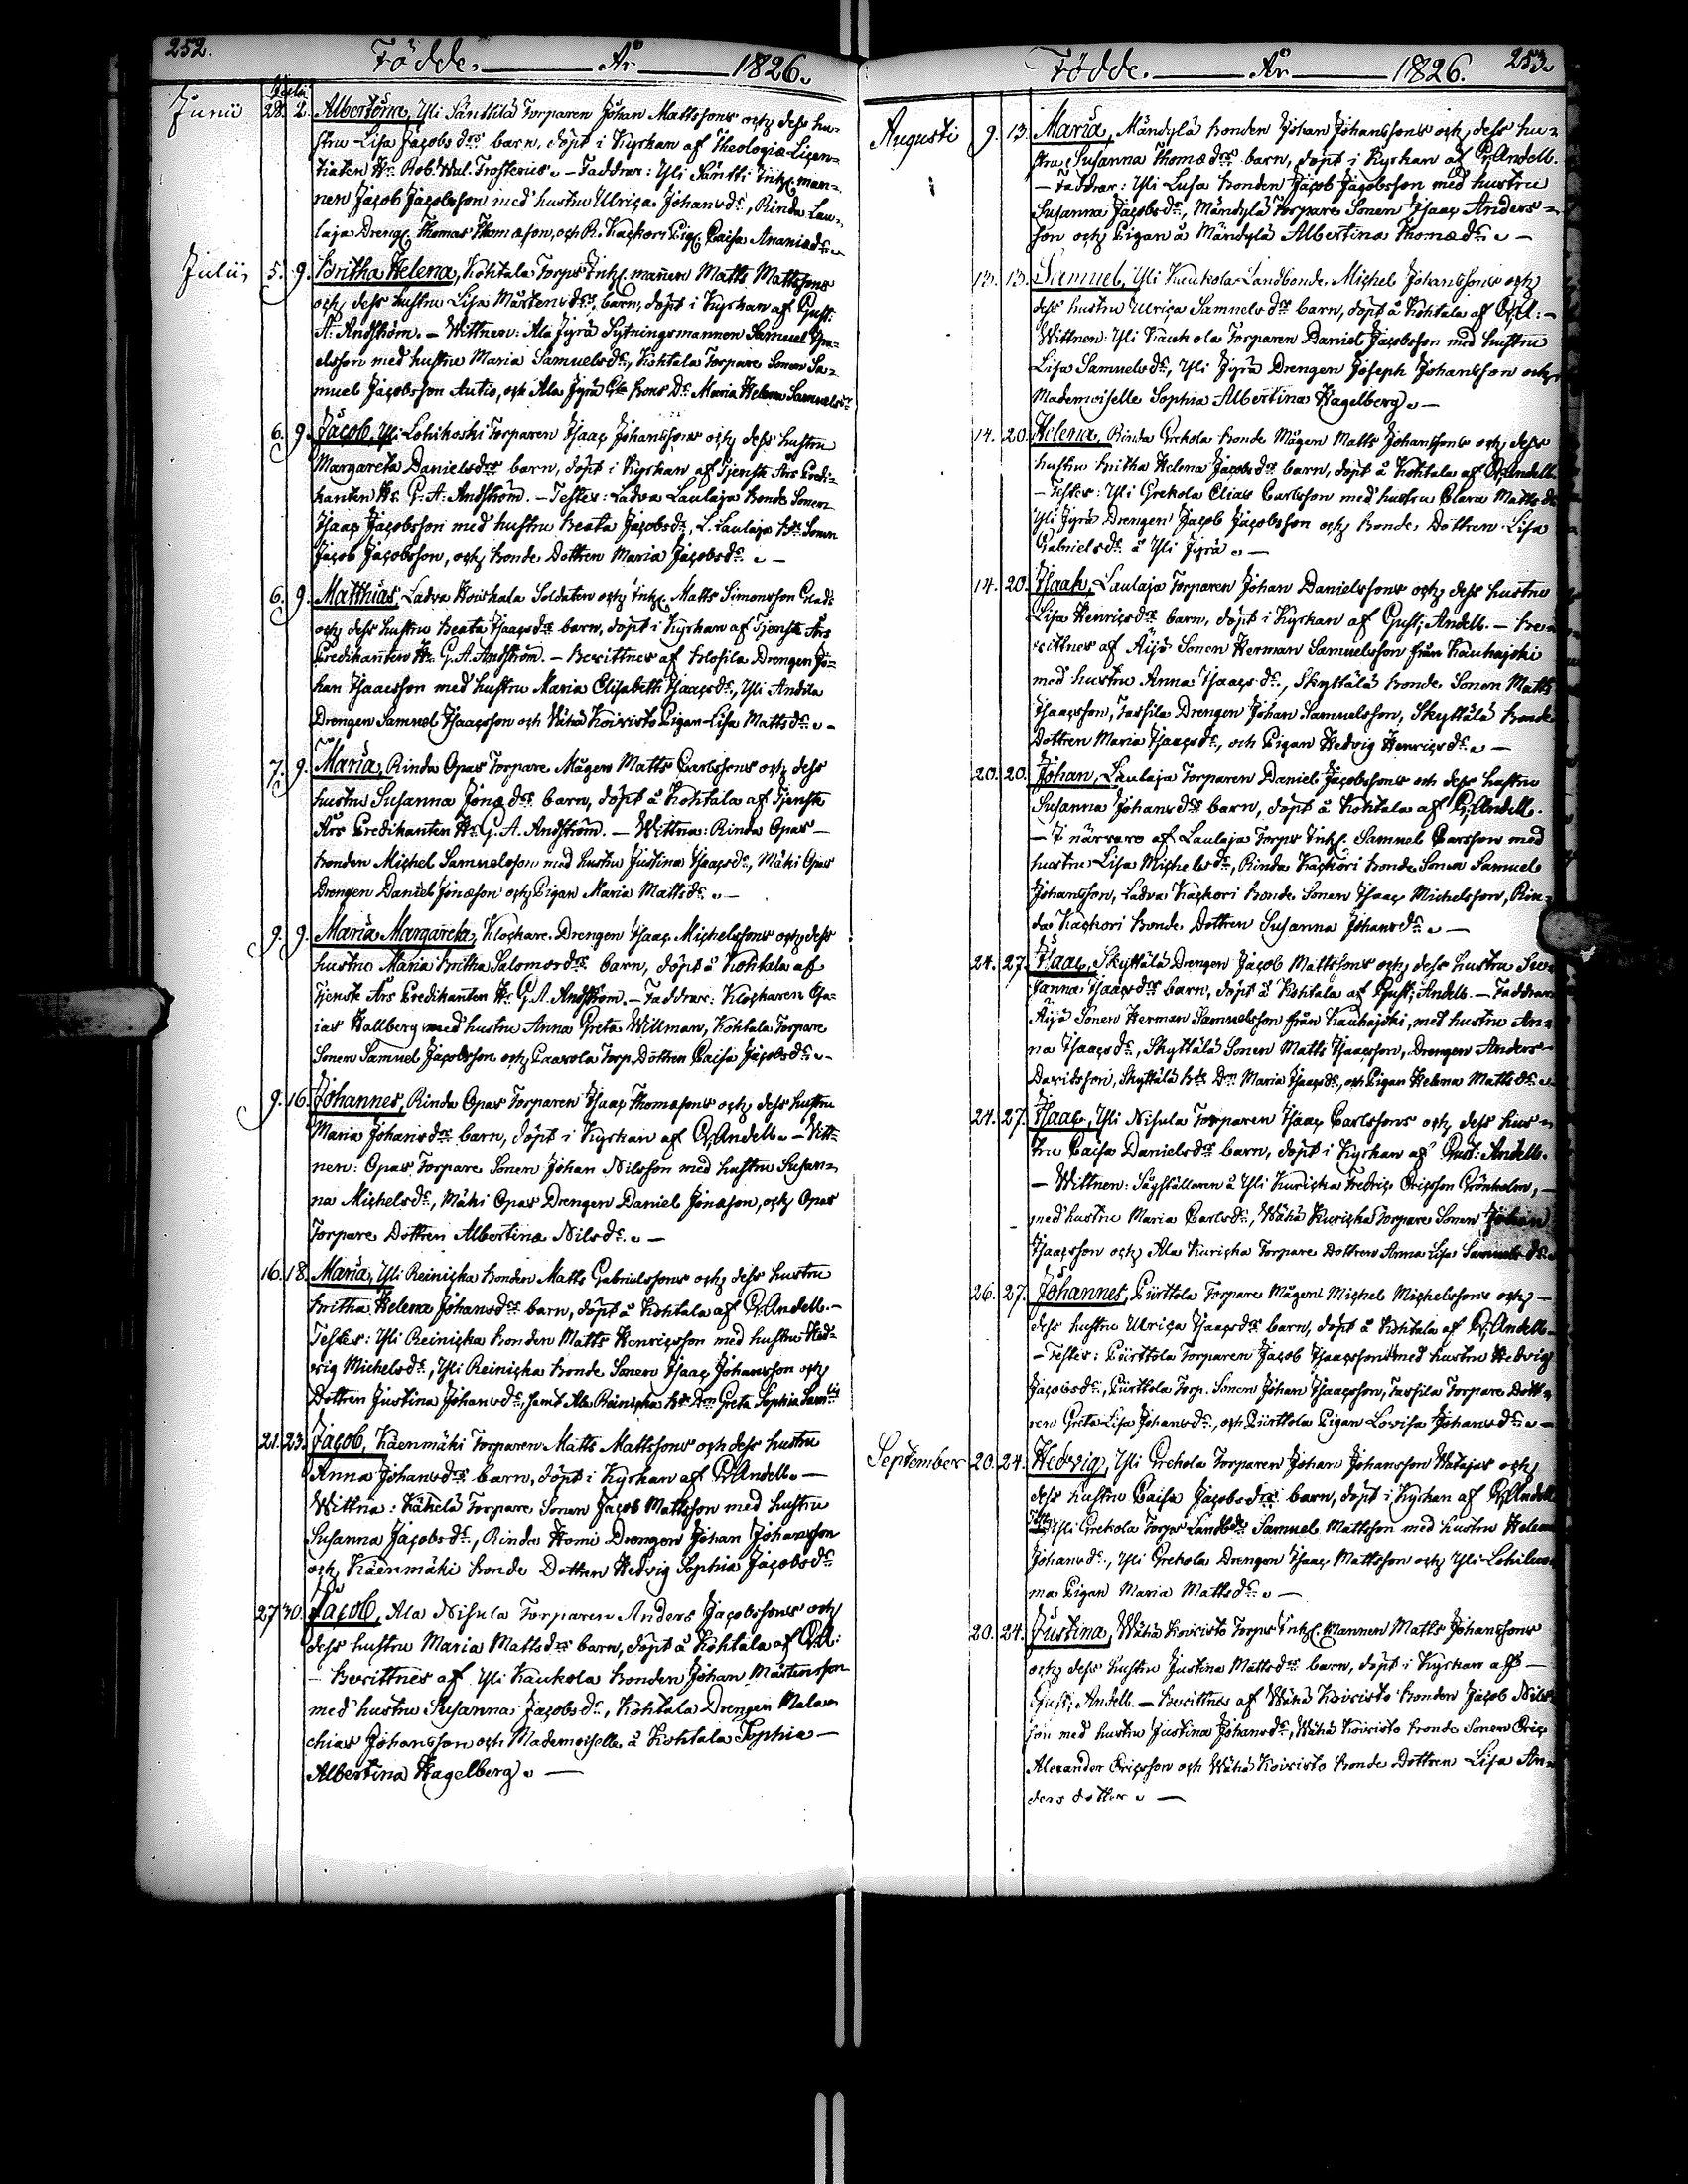 252.
Födde. År 1826.
Junii Julii
28. 2. Albertina, Yli Säntilä Torparen Johan Mattssons och dess hu-
stru Lisa Jacobs drs barn, döpt i Kyrkan af Theologiæ Licen-
tiaten Hr. Rob. Wal. Frosterius. – Faddrar: Yli Säntti Inh. man-
nen Jacob Jacobsson med hustru Ulrica Johans dr, Rinda Lau-
laja Dreng. Thomas Thomæson, och R. Kackori Pig. Caisa Ananiæ dr.
Julii, 5. 9. Britha Helena, Kohtala Torps Inh. mannen Matts Mattssons
och dess hustru Lisa Mårtens drs barn, döpt i Kyrkan af Gust:
A. Andström. – Wittnen: Ala Jyrä Sytningsmannen Samuel
elsson med hustru Maria Samuels dr, Kohtala Torpare Sonen Sa-
muel Jacobsson Autio, och Ala Jyrä Bons Dr Maria Helena Samuels dr
6. 9. Jacob, Yli Lohikoski Torparen Isaac Johanssons och dess hustru
Margareta Daniels drs barn, döpt i Kyrkan af Tjenst Års Predi-
kanten Hr. G. A. Andström. – Testes: Ladva Laulaja Bonde Sonen
Isaac Jacobsson med hustru Beata Jacobs dr, L. Laulaja Bde Sonen
Jacob Jacobsson, och Bonde Dottren Maria Jacobs dr. –
6. 9. Matthias, Ladva Hoiskala Soldaten och Inh. Matts Simonsson
och dess hustru Beata Isaacs drs barn, döpt i Kyrkan af Tjenst Års
Predikanten Hr. G. A. Andström. – Bevittnes af Klosila Drengen Jo-
han Isaacsson med hustru Maria Elisabeth Isaacs dr, Yli Andila
Drengen Samuel Isaacsson och Wähä Koivisto Pigan Lisa Matts dr. –
7. 9. Maria, Rinda Opas Torpare Mågen Matts Carlssons och dess
hustru Susanna Jonæ drs barn, döpt å Kohtala af Tjenst
Års Predikanten Hr. G. A. Andström. – Wittna: Rinda Opas
Bonden Michel Samuelsson med hustru Justina Isaacs dr, Mäki Opas
Drengen Daniel Jonæson och Pigan Maria Matts dr. –
9. 9. Maria Margareta, Klockare Drengen Isaac Michelssons och dess
hustru Maria Britha Salomons drs barn, döpt å Kohtala af
Tjenst Års Predikanten Hr. G. A. Andström. – Faddrar: Klockaren Esa-
ias Hallberg med hustru Anna Greta Willman, Kohtala Torpare
Sonen Samuel Jacobsson och Paavola Torp. Dottren Caisa Jacobs dr. –
9. 16. Johannes, Rinda Opas Torparen Isaac Thomæsons och dess hustru
Maria Johans drs barn, döpt i Kyrkan af G. Andell. – Witt-
nen: Opas Torpare Sonen Johan Nilsson med hustru Susan-
na Michels dr, Mäki Opas Drengen Daniel Jonæson, och Opas
Torpare Dottren Albertina Nils dr. –
16. 18. Maria, Yli Reinicka Bonden Matts Gabrielssons och dess hustru
Britha Helena Johans drs barn, döpt å Kohtala af G. Andell. –
Testes: Yli Reinicka Bonden Matts Henricsson med hustru Hed-
vig Michels dr, Yli Reinicka Bonde Sonen Isaac Johansson och
Dottren Justina Johans dr, samt Ala Reinicka Bde Drn Greta Sophia
21. 23. Jacob, Käenmäki Torparen Matts Mattssons och dess hustru
Anna Johans drs barn, döpt i Kyrkan af G. Andell. –
Wittna: Kähilä Torpare Sonen Jacob Mattsson med hustru
Susanna Jacobs dr, Rinda Homi Drengen Johan Johansson
och Käenmäki Bonde Dottren Hedvig Sophia Jacobs dr
27. 30. Jacob, Ala Nisula Torparen Anders Jacobssons och
dess hustru Maria Matts drs barn, döpt å Kohtala af G. A:
– Bevittnes af Yli Kaukola Bonden Johan Mårtensson
med hustru Susanna Jacobs dr, Kohtala Drengen Mala-
chias Johansson och Mademoiselle å Kohtala Sophia
Albertina Hagelberg. –
Födde. År 1826. 253.
Augusti 9. 13. Maria, Mändylä Bonden Johan Johanssons och dess hu-
stru Susanna Thomæ drs barn, döpt i Kyrkan af G. Andell.
– Faddrar: Yli Lusa Bonden Jacob Jacobsson med hustru
Susanna Jacobs dr, Mändylä Torpare Sonen Isaac Anders-
son och Pigan å Mändylä Albertina Thomæ dr. –
13. 13. Samuel, Yli Kaukola Landbonde Michel Johanssons och
dess hustru Ulrica Samuels drs barn, döpt å Kohtala af G. A: –
Wittnen: Yli Kaukola Torparen Daniel Jacobsson med hustru
Lisa Samuels dr, Yli Jyrä Drengen Joseph Johansson och
Mademoiselle Sophia Albertina Hagelberg. –
14. 20. Helena, Rinda Grekola Bonde Mågen Matts Johanssons och dess
hustru Britha Helena Jacobs drs barn, döpt å Kohtala af G. Andell.
– Testes: Yli Grekola Elias Carlsson med hustru Clara Matts dr
Yli Jyrä Drengen Jacob Jacobsson och Bonde Dottren Lisa
Gabriels dr å Yli Jyrä. –
14. 20. Isaak, Laulaja Torparen Johan Danielssons och dess hustru
Lisa Henrics drs barn, döpt i Kyrkan af Gust: Andell. – Be-
vittnes af Äijö Sonen Herman Samuelsson från Kauhajoki
med hustru Anna Isaacs dr, Skyttälä Bonde Sonen Matts
Isaacsson, Fassila Drengen Johan Samuelsson, Skyttälä Bonde
Dottren Maria Isaacs dr, och Pigan Hedvig Henrics dr. –
20. 20. Johan, Laulaja Torparen Daniel Jacobssons och dess hustru
Susanna Johans drs barn, döpt å Kohtala af G. Andell.
– I närvaro af Laulaja Torps Inh. Samuel Carsson med
hustru Lisa Michels dr, Rinda Kackori Bonde Sonen Samuel
Johansson, Ladva Kackori Bonde Sonen Isaac Michelsson, Rin-
da Kackori Bonde Dottren Susanna Johans dr. –
24. 27. Isaac, Skyttälä Drengen Jacob Mattssons och dess hustru Su-
sanna Isaacs drs barn, döpt å Kohtala af Gust: Andell. – Faddrar:
Äijö Sonen Herman Samuelsson från Kauhajoki, med hustru An-
na Isaacs dr, Skyttälä Sonen Matts Isaacsson, Drengen Anders
Davidsson, Skyttälä Bde Drn Maria Isaacs dr, och Pigan Helena Matts dr. –
24. 27. Isaac, Yli Nisula Torparen Isaac Carlssons och dess hus-
tru Caisa Daniels drs barn, döpt i Kyrkan af Gust: Andell.
– Wittnen: Sågställaren å Yli Kuricka Fredric Ericsson Grönholm, –
med hustru Maria Carls dr, Wähä Kuricka Torpare Sonen Johan
Isaacsson och Ala Kuricka Torpare Dottren Anna Lisa Samuels dr.
26. 27. Johannes, Piirttola Torpare Mågen Michel Michelssons och –
dess hustru Ulrica Isaacs drs barn, döpt å Kohtala af G. Andell.
– Testes: Piirttola Torparen Jacob Isaacsson med hustru Hedvig
Jacobs dr, Piirttola Torp. Sonen Johan Isaacsson, Fassila Torpare Dott-
ren Greta Lisa Johans dr, och Piirttola Pigan Lovisa Johans dr. –
September 20. 24. Hedvig, Yli Grekola Torparen Johan Johansson Watajas och
dess hustru Caisa Jacobs drs barn, döpt i Kyrkan af G. Andell
Yli Grekola Torps Landbde Samuel Mattsson med hustru Helena
Johans dr, Yli Grekola Drengen Isaac Mattsson och Yli Lohiluo-
ma Pigan Maria Matts dr. –
20. 24. Justina, Wähä Koivisto Torps Inh. Mannen Matts Johanssons
och dess hustru Justina Matts drs barn, döpt i Kyrkan af –
Gust: Andell. – Bevittnes af Wähä Koivisto Bonden Jacob Nils-
son med hustru Justina Johans dr, Wähä Koivisto Bonde Sonen Eric
Alexander Ericsson och Wähä Koivisto Bonde Dottren Lisa An-
ders dotter. –